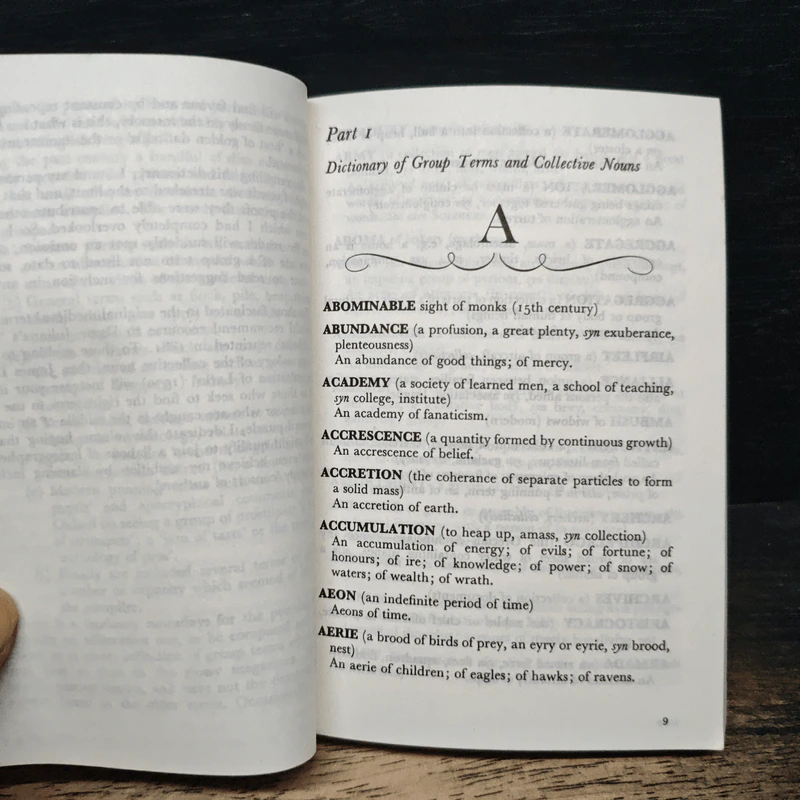 Part 1
Dictionary of Group Terms and Collective Nouns
A
ABOMINABLE sight of monks (15th century)
ABUNDANCE (a profusion, a great plenty, syn exuberance,
plenteousness)
An abundance of good things; of mercy.
ACADEMY (a society of learned men, a school of teaching,
syn college, institute)
An academy of fanaticism.
ACCRESCENCE (a quantity formed by continuous growth)
An accrescence of belief.
ACCRETION (the coherance of separate particles to form
a solid mass)
An accretion of earth.
ACCUMULATION (to heap up, amass, syn collection)
An accumulation of energy; of evils; of fortune; of
honours; of ire; of knowledge; of power; of snow; of
waters; of wealth; of wrath.
AEON (an indefinite period of time)
Aeons of time.
AERIE (a brood of birds of prey, an eyry or eyrie, syn brood,
nest)
An aerie of children; of eagles; of hawks; of ravens.
9